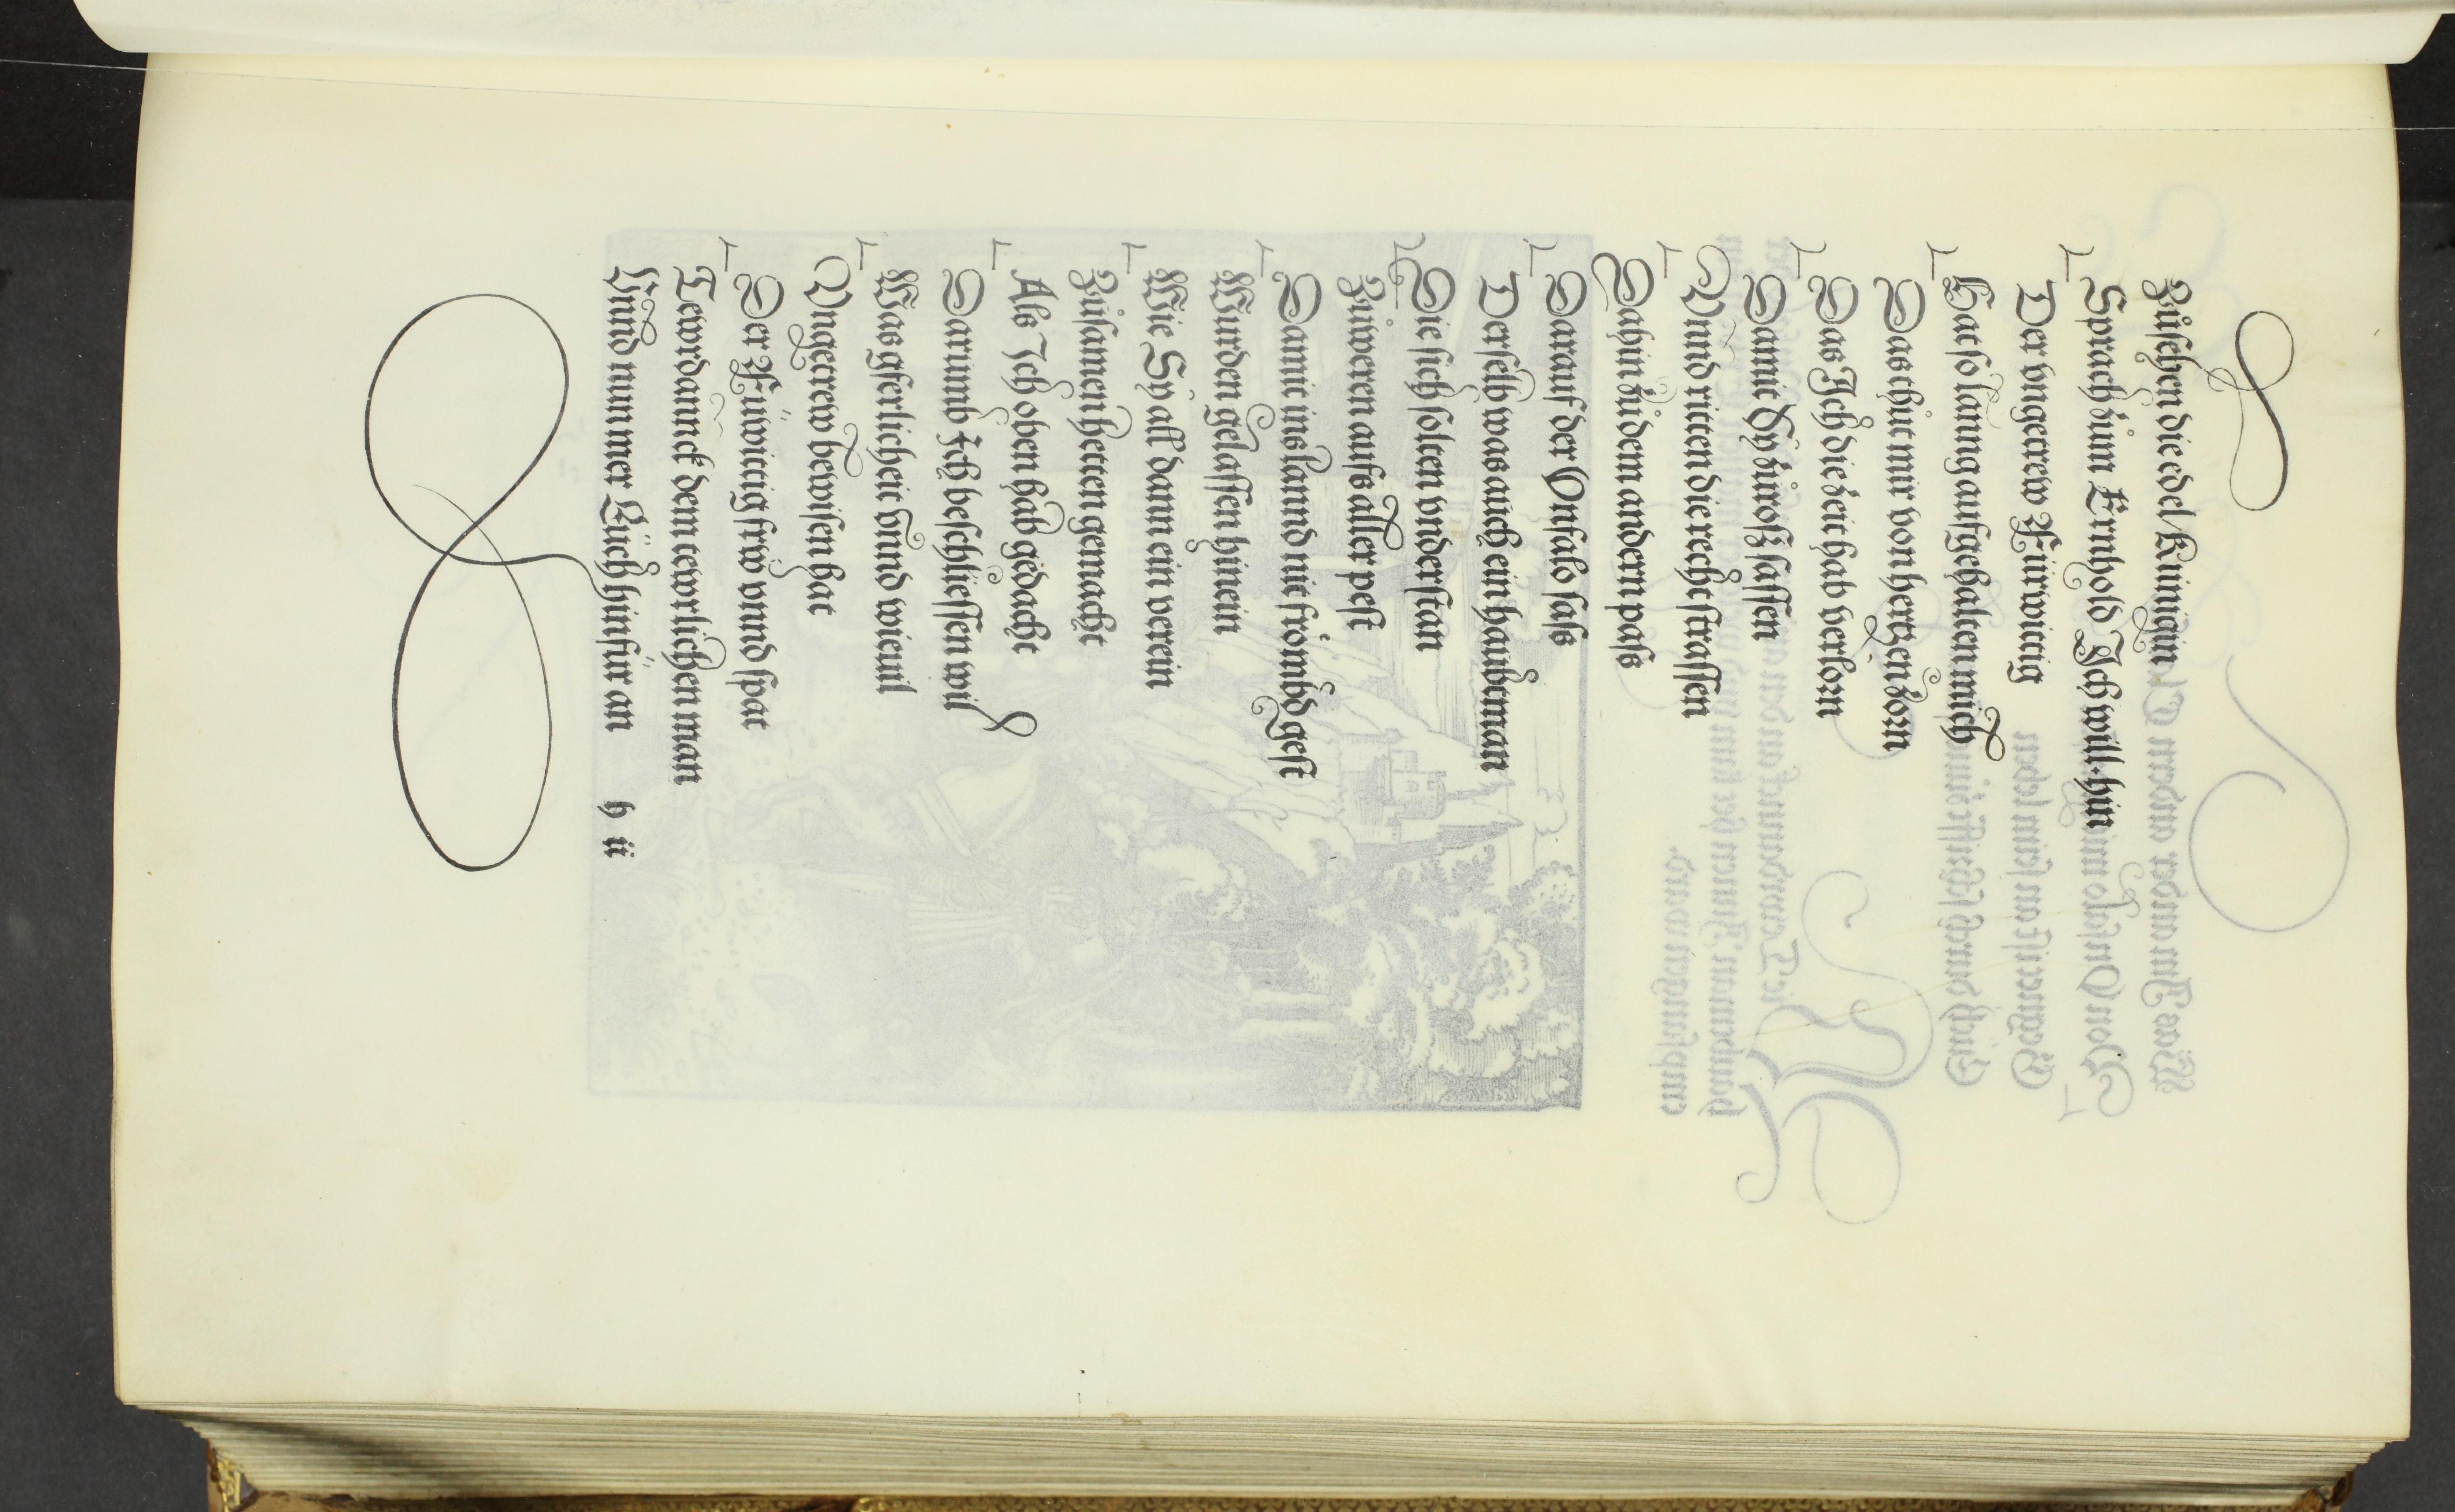 Zůsehen die edel Künigin
Sprach zům Ernhold Ich will hin
Der vngetrew Fürwittig
Hat so lanng aufgehalten mich
Das thůt mir von hertzen zorn
Das Ich die zeit hab verlorn
Damit Sy zůroß sassen
Vnnd ritten die recht strassen
Dahin zů dem andern pass
Darauf der Vnfalo sass
Derselb was auch ein haubtman
Die sich solten vnderstan
Zůweren aufs aller pest
Damit ins lannd nit frömbd gest
Wurden gelassen hinein
Wie Sy all dann ein verein
Zůsamen hetten gemacht
Als Ich oben hab gedacht
Darumb Ich beschliessen wil
Was gferlicheit Vnnd wieuil
Vngetrew bewisen hat
Der Fürwittig frw vnnd spat
Tewrdannck dem tewrlichen man
Vnnd nun mer Eüch hinfür an
h ii